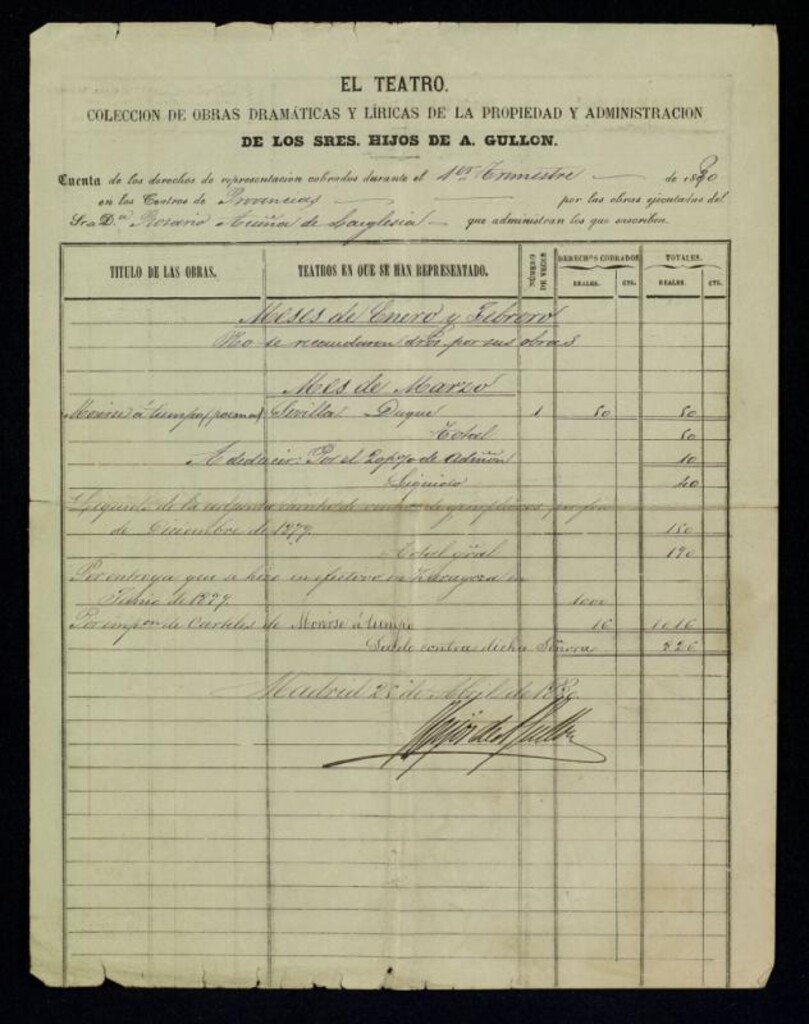 EL TEATRO.
COLECCION DE OBRAS DRAMÁTICAS Y LÍRICAS DE LA PROPIEDAD Y ADMINISTRACION
DE LOS SRES. HIJOS DE A. GULLON.
Cuenta de los derechos de representacion cobrados durante el 1er Trimestre de 1880
en los Teatros de Provincias por las obras ejecutadas del
Sra D.a Rosario Acuña de Laiglesia que administran los que suscriben.
TITULO DE LAS OBRAS. TEATROS EN QUE SE HAN REPRESENTADO. NÚMERO DE VECES DERECHOS COBRADOS TOTALES.
REALES. CTS. REALES. CTS.
Meses de Enero y Febrero
No se recaudaron dros. por sus obras
Mes de Marzo
Morirse á tiempo (poema) Sevilla Duque 1 50 50
Total 50
A deducir: Por el 20 p% de Admón 10
Líquido 40
de la de
de Diciembre de 1879. 150
Total gral 190
Por entrega que se hizo en efectivo en Zaragoza en
Junio de 1879. 1000
Por de Carteles de Morirse á tiempo 16 1016
Saldo contra dicha Señora 826
Madrid de Abril de 1880.
Hijos de A. Gullon